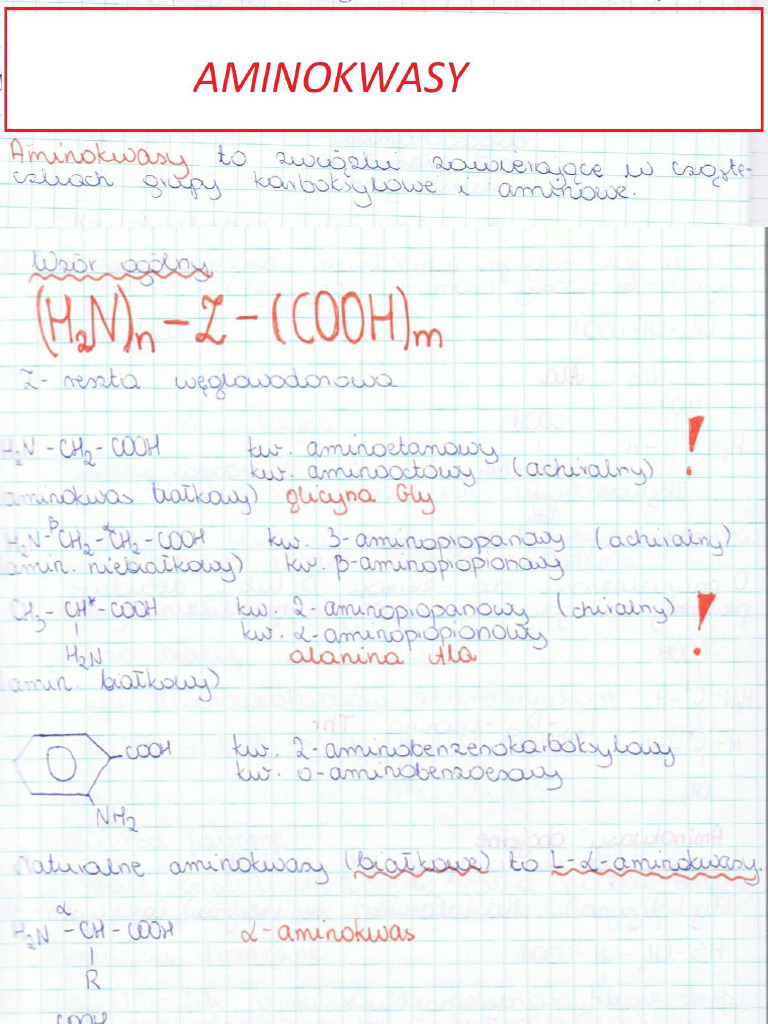 AMINOKWASY
Aminokwasy to związki zawierające w cząste-
czkach grupy karboksylowe i aminowe.
Wzór ogólny
(H₂N)n – Z – (COOH)m
Z- reszta węglowodorowa
H₂N - CH₂ - COOH kw. aminoetanowy !
kw. aminooctowy (achiralny)
aminokwas białkowy) glicyna Gly
H₂N - ᵝCH₂ - ᵅCH₂ - COOH kw. 3-aminopropanowy (achiralny)
amin. niebiałkowy) kw. β-aminopropionowy
CH₃ - CH* - COOH kw. 2-aminopropanowy (chiralny) !
kw. α-aminopropionowy
H₂N alanina Ala
amin. białkowy)
COOH kw. 2-aminobenzenokarboksylowy
kw. o-aminobenzoesowy
NH₂
Naturalne aminokwasy (białkowe) to L-α-aminokwasy.
α
H₂N - CH - COOH α-aminokwas
R
COOH